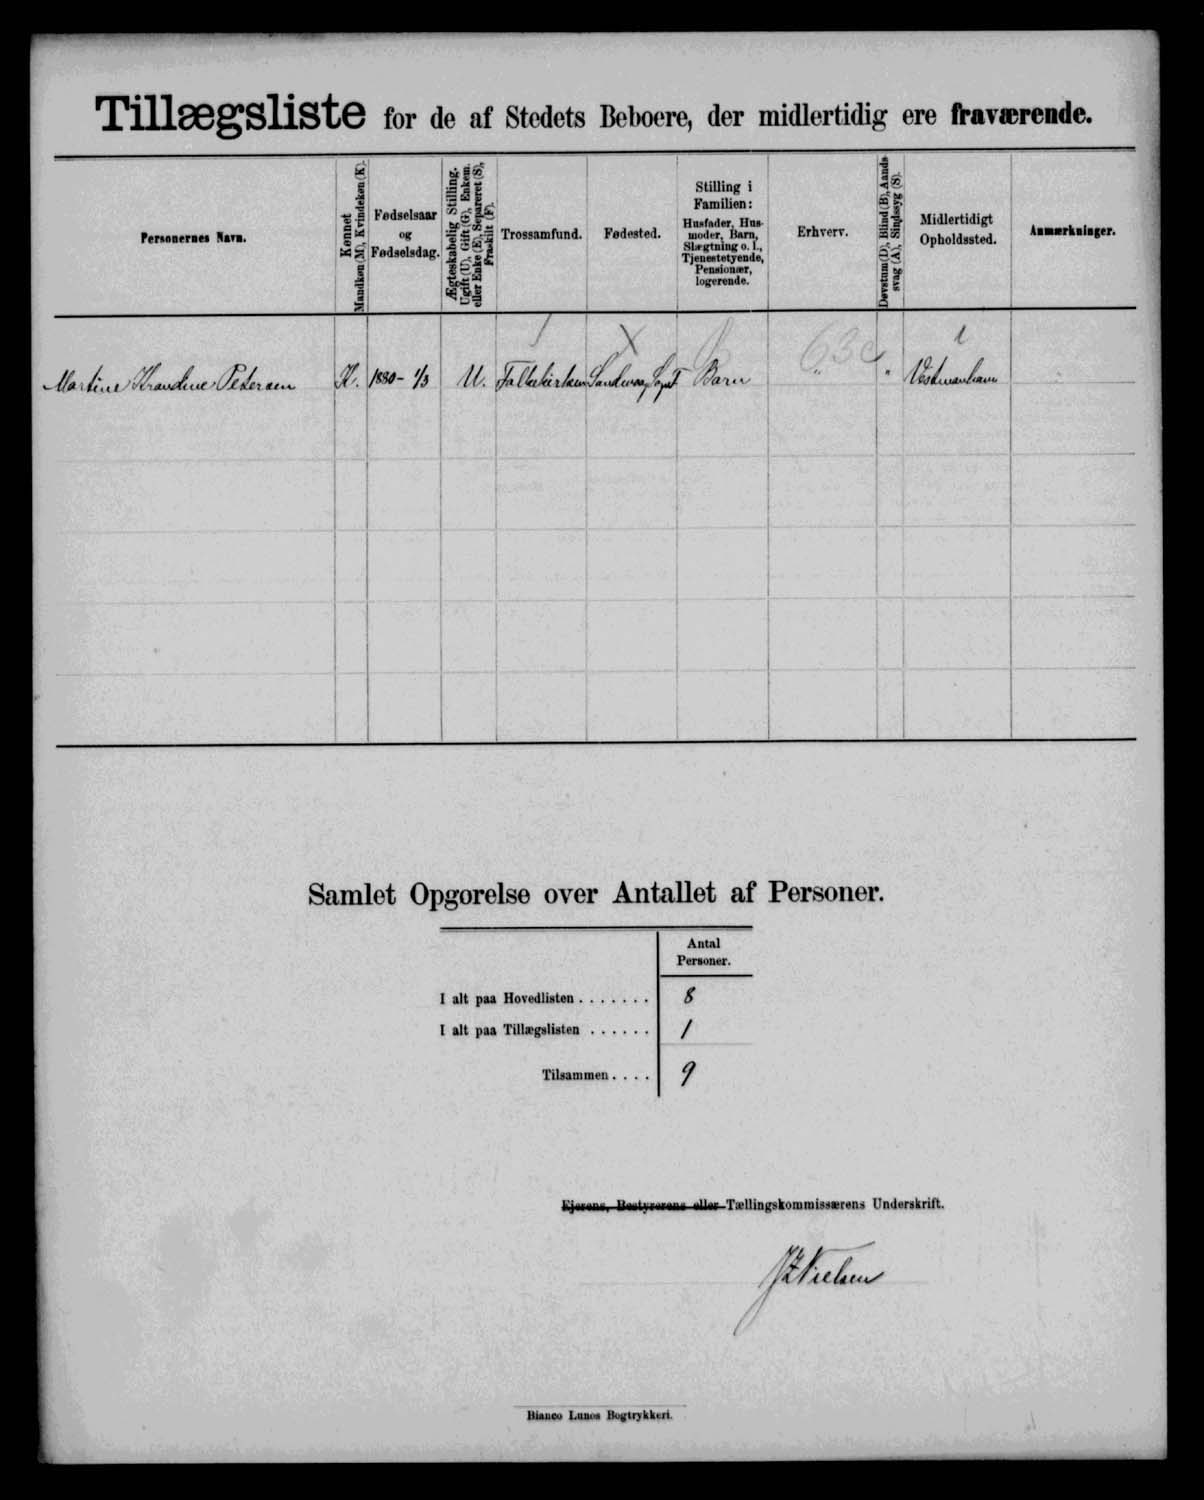 Tillægsliste for de af Stedets Beboere, der midlertidig ere fraværende.
Personernes Navn.
Kønnet
Mandkøn (M), Kvindekøn (K).
Fødselsaar
og
Fødselsdag.
Ægteskabelig Stilling.
Ugift (U), Gift (G), Enkem.
eller Enke (E), Separeret (S),
Fraskilt (F).
Trossamfund.
Fødested.
Stilling i
Familien:
Husfader, Hus-
moder, Barn,
Slægtning o. l.,
Tjenestetyende,
Pensionær,
logerende.
Erhverv.
Døvstum (D), Blind (B), Aands-
svag (A), Sindssyg (S).
Midlertidigt
Opholdssted.
Anmærkninger.
63 c
Martine Petersen K. 1880 - 1/3 U. Folkekirken Sandevaag Sogn Barn " " Vestmanhavn
Samlet Opgørelse over Antallet af Personer.
Antal
Personer.
I alt paa Hovedlisten . . . . . . . 8
I alt paa Tillægslisten . . . . . . 1
Tilsammen . . . . 9
Ejerens, Bestyrerens eller Tællingskommissærens Underskrift.
Nielsen
Bianco Lunos Bogtrykkeri.